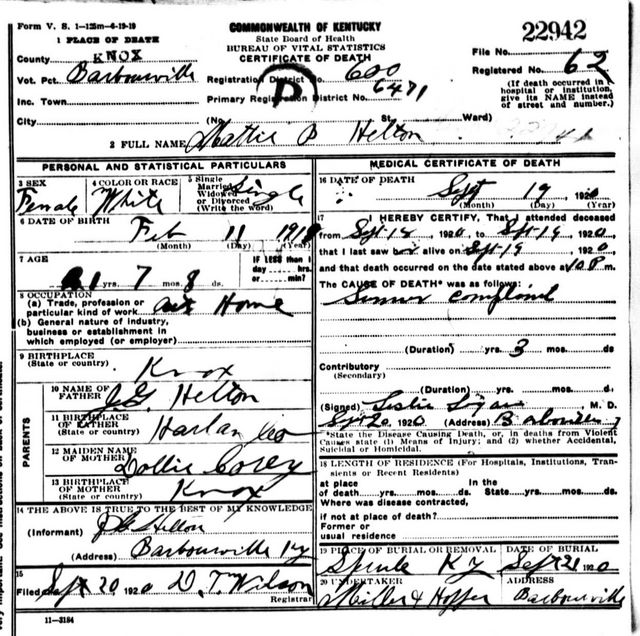 Form V. S. 1—125m—6-19-19
1 PLACE OF DEATH
County KNOX
Vot. Pct. Barbourville
Inc. Town
City
COMMONWEALTH OF KENTUCKY
State Board of Health
BUREAU OF VITAL STATISTICS
CERTIFICATE OF DEATH
Registration District No. 600
Primary Registration District No. 6471
D
(No. St. Ward)
22942
File No.
Registered No. 62
(If death occurred in
hospital or institution,
give its NAME instead
of street and number.)
2 FULL NAME Mattie B Helton
PERSONAL AND STATISTICAL PARTICULARS
3 SEX Female
4 COLOR OR RACE White
5 Single Married Widowed or Divorced (Write the word) Single
6 DATE OF BIRTH Feb 11 1919
(Month) (Day) (Year)
7 AGE
1 yrs. 7 mos. 8 ds.
IF LESS than 1
day hrs.
or min?
8 OCCUPATION
(a) Trade, profession or
particular kind of work at Home
(b) General nature of industry,
business or establishment in
which employed (or employer)
9 BIRTHPLACE
(State or country) Knox
PARENTS
10 NAME OF
FATHER J G Helton
11 BIRTHPLACE
OF FATHER
(State or country) Harlan
12 MAIDEN NAME
OF MOTHER Dollie
13 BIRTHPLACE
OF MOTHER
(State or country) Knox
14 THE ABOVE IS TRUE TO THE BEST OF MY KNOWLEDGE
(Informant) J G Helton
(Address) Barbourville Ky
15
Filed Sept 20 1920 D. T. Wilson
Registrar
11—3184
MEDICAL CERTIFICATE OF DEATH
16 DATE OF DEATH Sept 19 1920
(Month) (Day) (Year)
17 I HEREBY CERTIFY, That I attended deceased
from Sept 18, 1920, to Sept 19, 1920,
that I last saw her alive on Sept 19, 1920,
and that death occurred on the date stated above at 10 P m.
The CAUSE OF DEATH* was as follows:
Summer complaint
(Duration) yrs. 3 mos. ds
Contributory
(Secondary)
(Duration) yrs. mos. d.
(Signed) Leslie Logan M. D.
Sept 20 1920 (Address) Barbourville
*State the Disease Causing Death, or, in deaths from Violent
Causes state (1) Means of Injury; and (2) whether Accidental,
Suicidal or Homicidal.
18 LENGTH OF RESIDENCE (For Hospitals, Institutions, Tran-
sients or Recent Residents)
at place In the
of death yrs. mos. ds. State yrs. mos. ds.
Where was disease contracted,
if not at place of death?
Former or
usual residence
19 PLACE OF BURIAL OR REMOVAL DATE OF BURIAL
Sprule Ky Sept 21 1920
20 UNDERTAKER ADDRESS
Miller & Hopper Barbourville